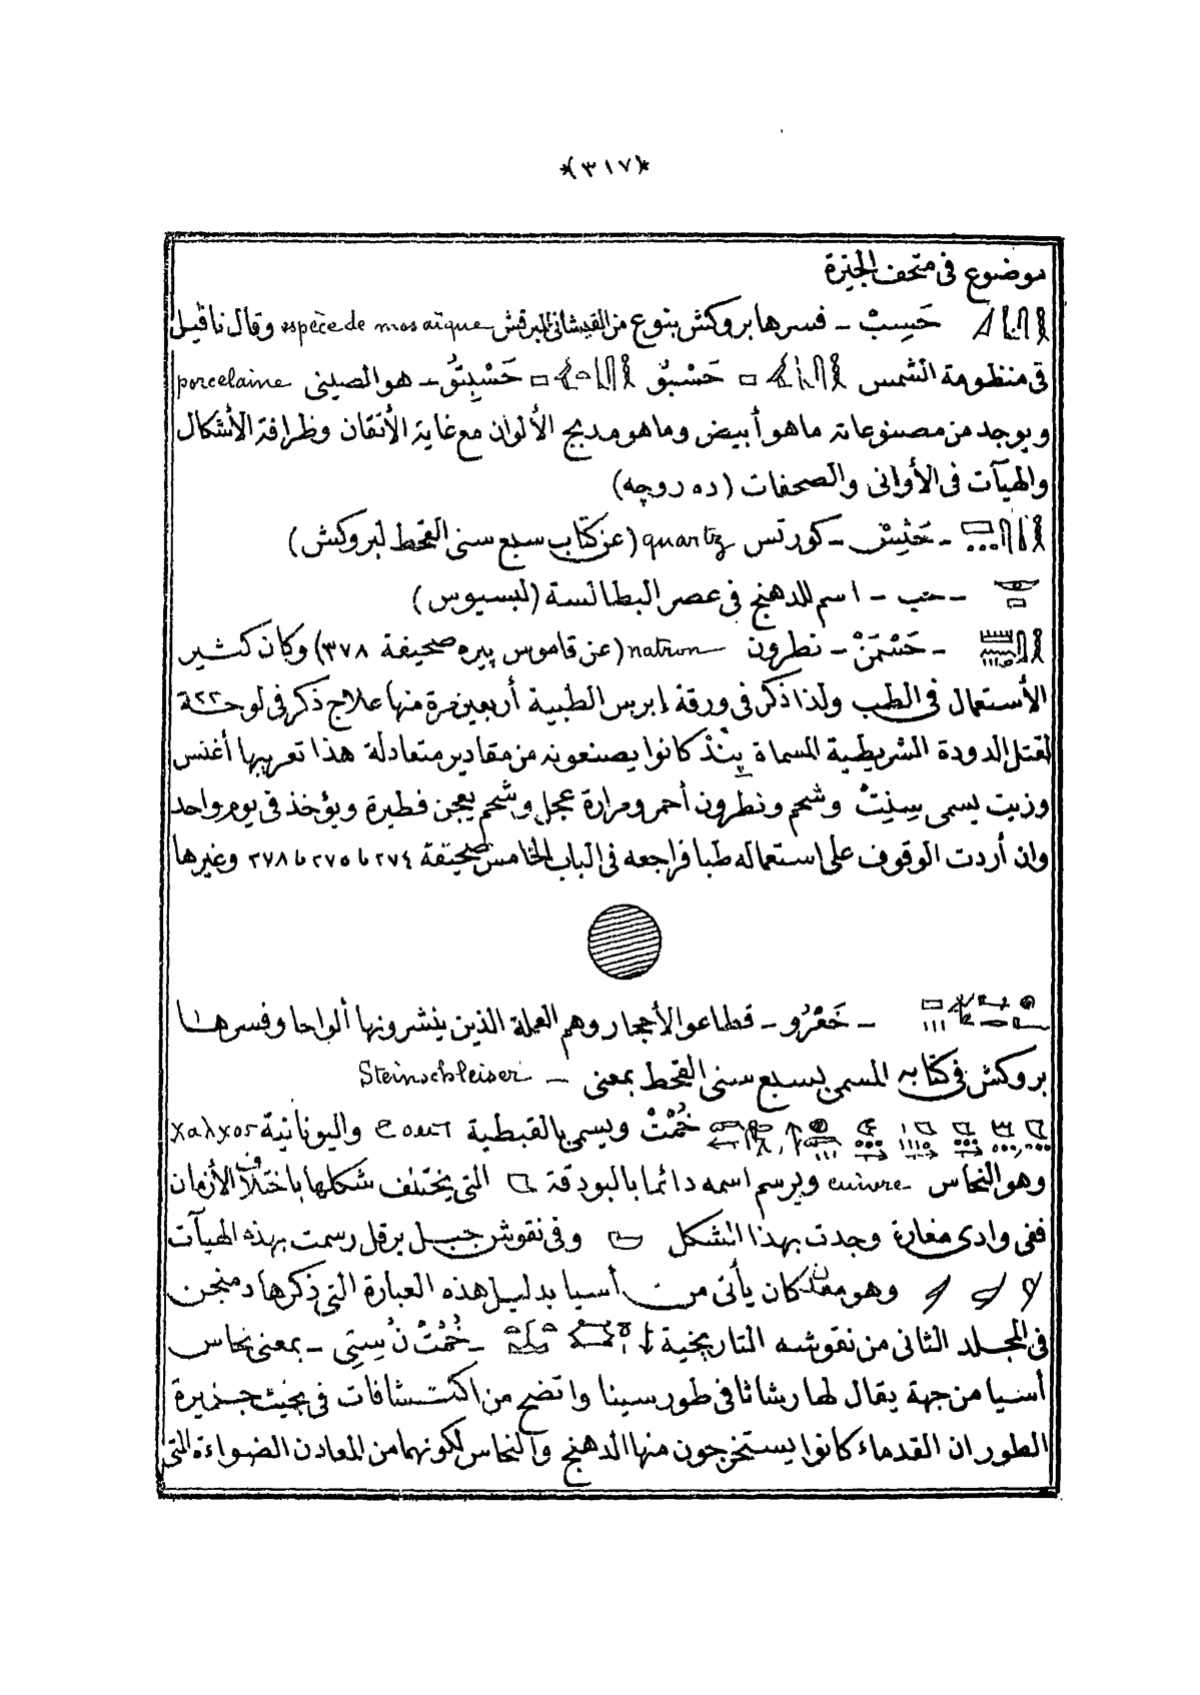 *(٣١٧)*
موضوع فى متحف الجيزة
حَسِبْ - فسرها بروكش بنوع من القيشانى المبرقش espèce de mosaïque وقال ناڤيل
فى منظومة الشمس حَسْبِتْ حَسْبِتُو - هو الصينى porcelaine
ويوجد من مصنوعاته ماهو أبيض وماهو مدبج الألوان مع غاية الأتقان وظرافة الأشكال
والهيآت فى الأوانى والصحفات (ده روچه)
- حَتِسْ - كورتس quartz (عن كتاب سبع سنى القحط لبروكش)
- حب - اسم للدهنج فى عصر البطالسة (لبسيوس)
- حَسْمَنْ - نطرون natron (عن قاموس پيره صحيفة ٣٧٨) وكان كثير
الأستعمال فى الطب ولذا ذكر فى ورقة إبرس الطبية أربعين مرة منها علاج ذكر فى لوحة ٢٢
لقتل الدودة الشريطية المسماة پِنْدْ كانوا يصنعونه من مقادير متعادلة هذا تعريبها أغنس
وزيت يسمى سِنِتْ وشحم ونطرون أحمر ومرارة عجل وشحم يعجن فطيرة ويؤخذ فى يوم واحد
وان أردت الوقوف على استعماله طبا فراجعه فى الباب الخامس صحيفة ٢٧٤ ٢٧٥ ٢٧٨ وغيرها
- خَعْرُو - قطاعوا الأحجار وهم العملة الذين ينشرونها ألواحا وفسرها
بروكش فى كتابه المسمى بسبع سنى القحط بمعنى - Steinschleiser
خُمْتْ ويسمى بالقبطية ϩⲟⲙⲧ واليونانية χαλχος
وهو النحاس cuivre ويرسم اسمه دائما بالبودقة التى يختلف شكلها باختلاف الأزمان
ففى وادى مغارة وجدت بهذا الشكل وفى نقوش جبل برقل رسمت بهذه الهيآت
وهو معدن كان يأتى من أسيا بدليل هذه العبارة التى ذكرها دمنجن
فى المجلد الثانى من نقوشه التاريخية - خُمُتْ نْ سِتِى - بمعنى نحاس
أسيا من جهة يقال لها رشاثا فى طور سينا واتضح من اكتشافات فى بخيث جزيرة
الطور ان القدماء كانوا يستخرجون منها الدهنج والنحاس لكونهما من المعادن الضواءة التى